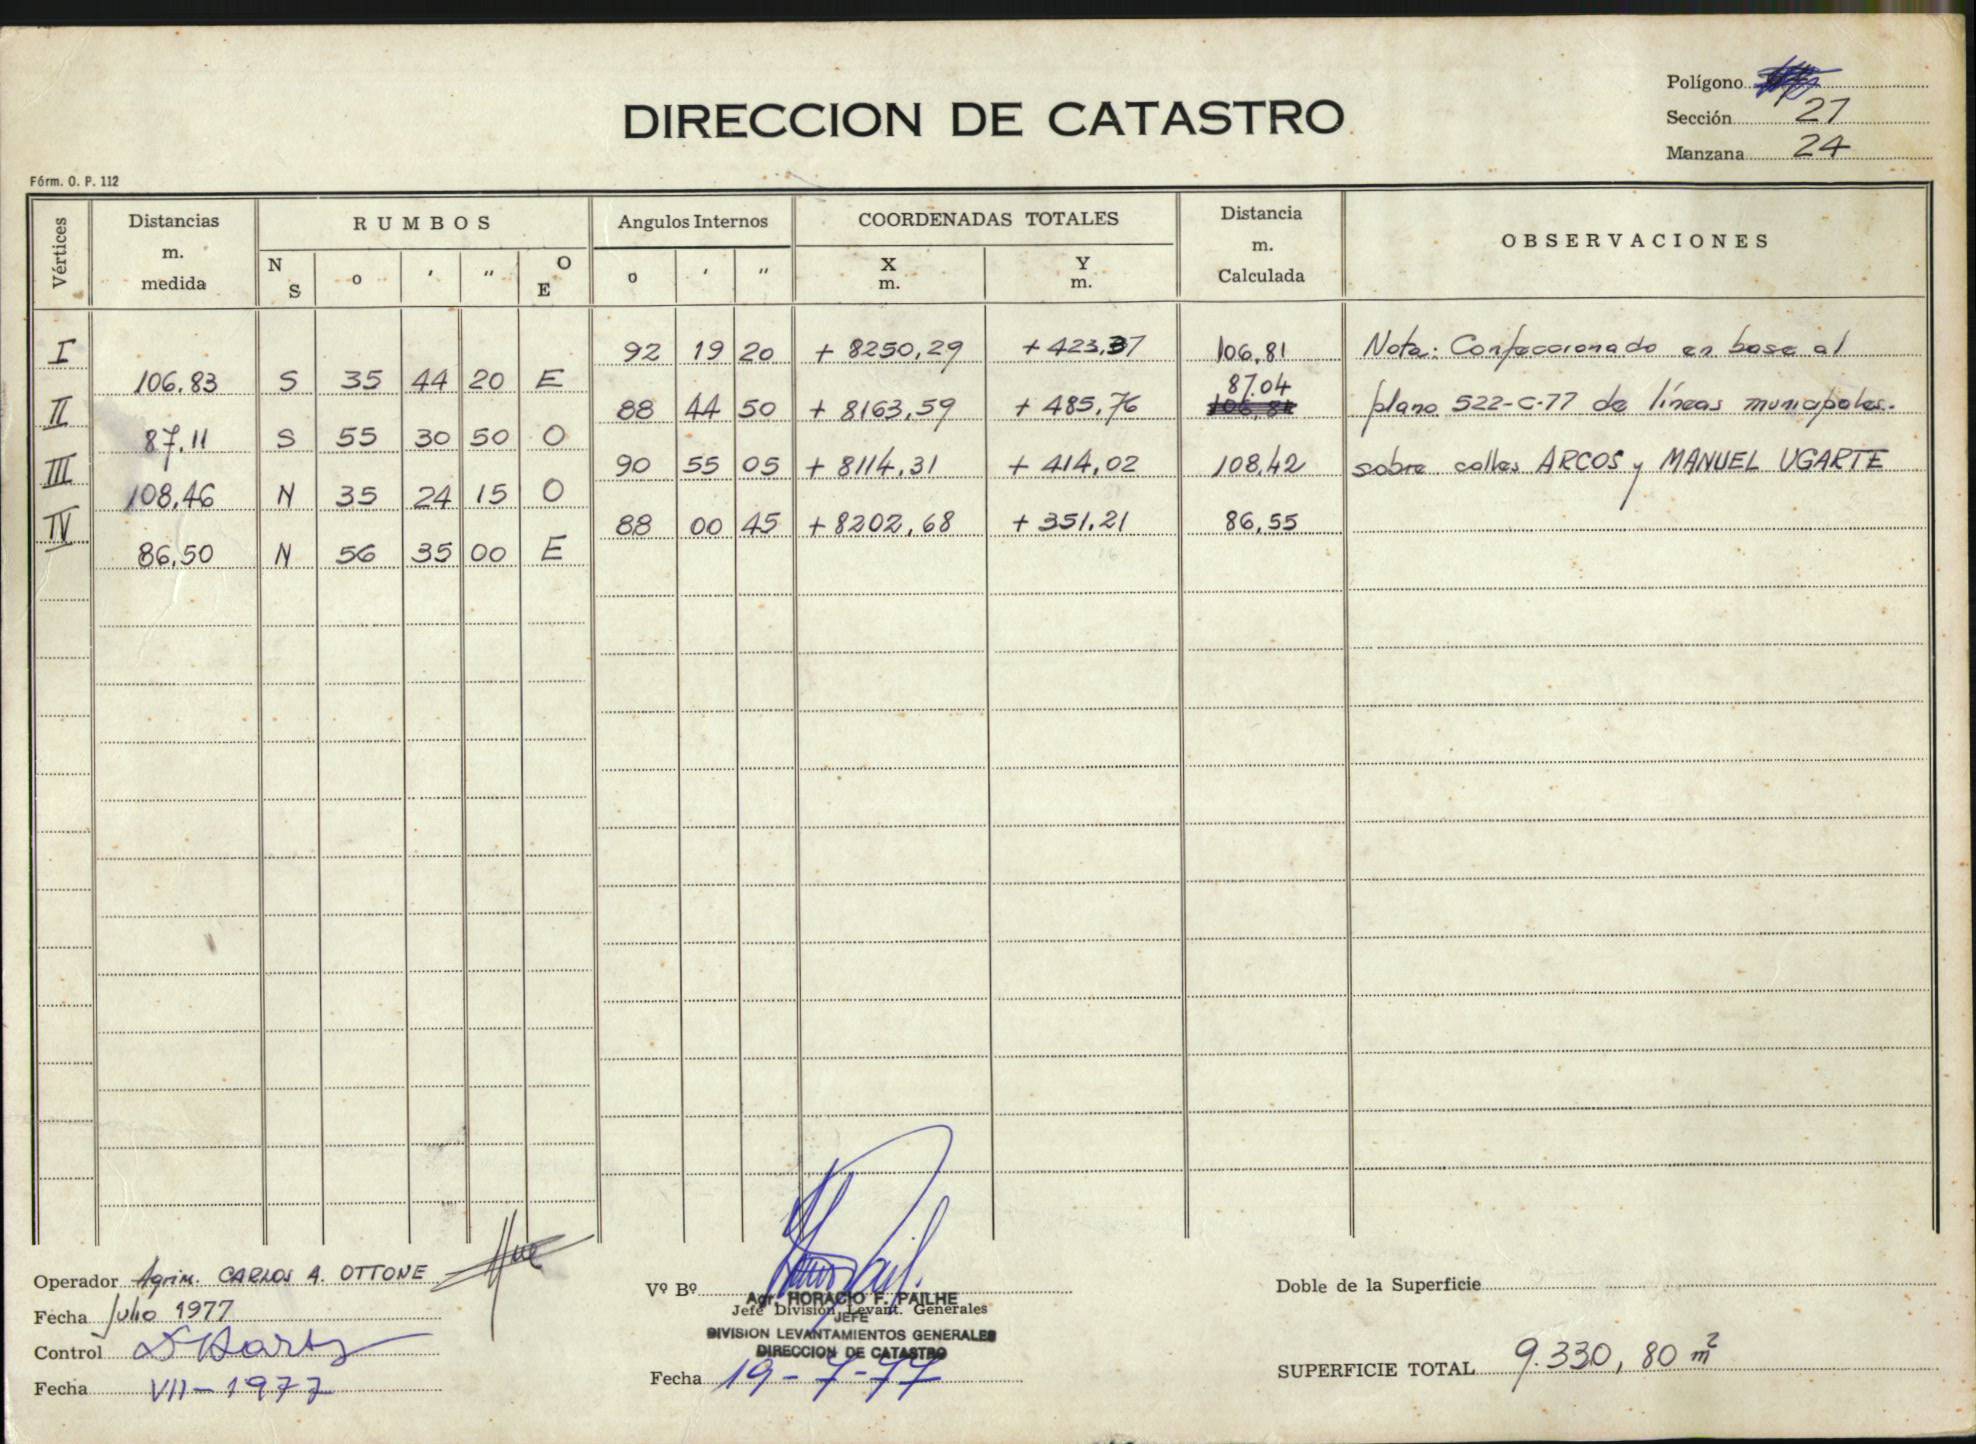 DIRECCION DE CATASTRO
Polígono
Sección 27
Manzana 24
Fórm. O. P. 112
Vértices
Distancias m. medida
RUMBOS
N S o ′ ″ O E
Angulos Internos
o ′ ″
COORDENADAS TOTALES
X m. Y m.
Distancia m. Calculada
OBSERVACIONES
I 92 19 20 + 8250,29 + 423,37 106,81 Nota: Confeccionado en base al
106.83 S 35 44 20 E
87.04
II 88 44 50 + 8163,59 + 485,76 106,81 plano 522-C-77 de líneas municipales.
87,11 S 55 30 50 O
III 90 55 05 + 8114,31 + 414,02 108,42 sobre calles ARCOS y MANUEL UGARTE
108,46 N 35 24 15 O
IV 88 00 45 + 8202,68 + 351,21 86,55
86,50 N 56 35 00 E
Operador Agrim. CARLOS A. OTTONE
Fecha Julio 1977
Control
Fecha VII-1977
Vº Bº
Agr. HORACIO F. PAILHE
Jefe División Levant. Generales
JEFE
DIVISION LEVANTAMIENTOS GENERALES
DIRECCION DE CATASTRO
Fecha 19-7-77
Doble de la Superficie
SUPERFICIE TOTAL 9.330,80 m²